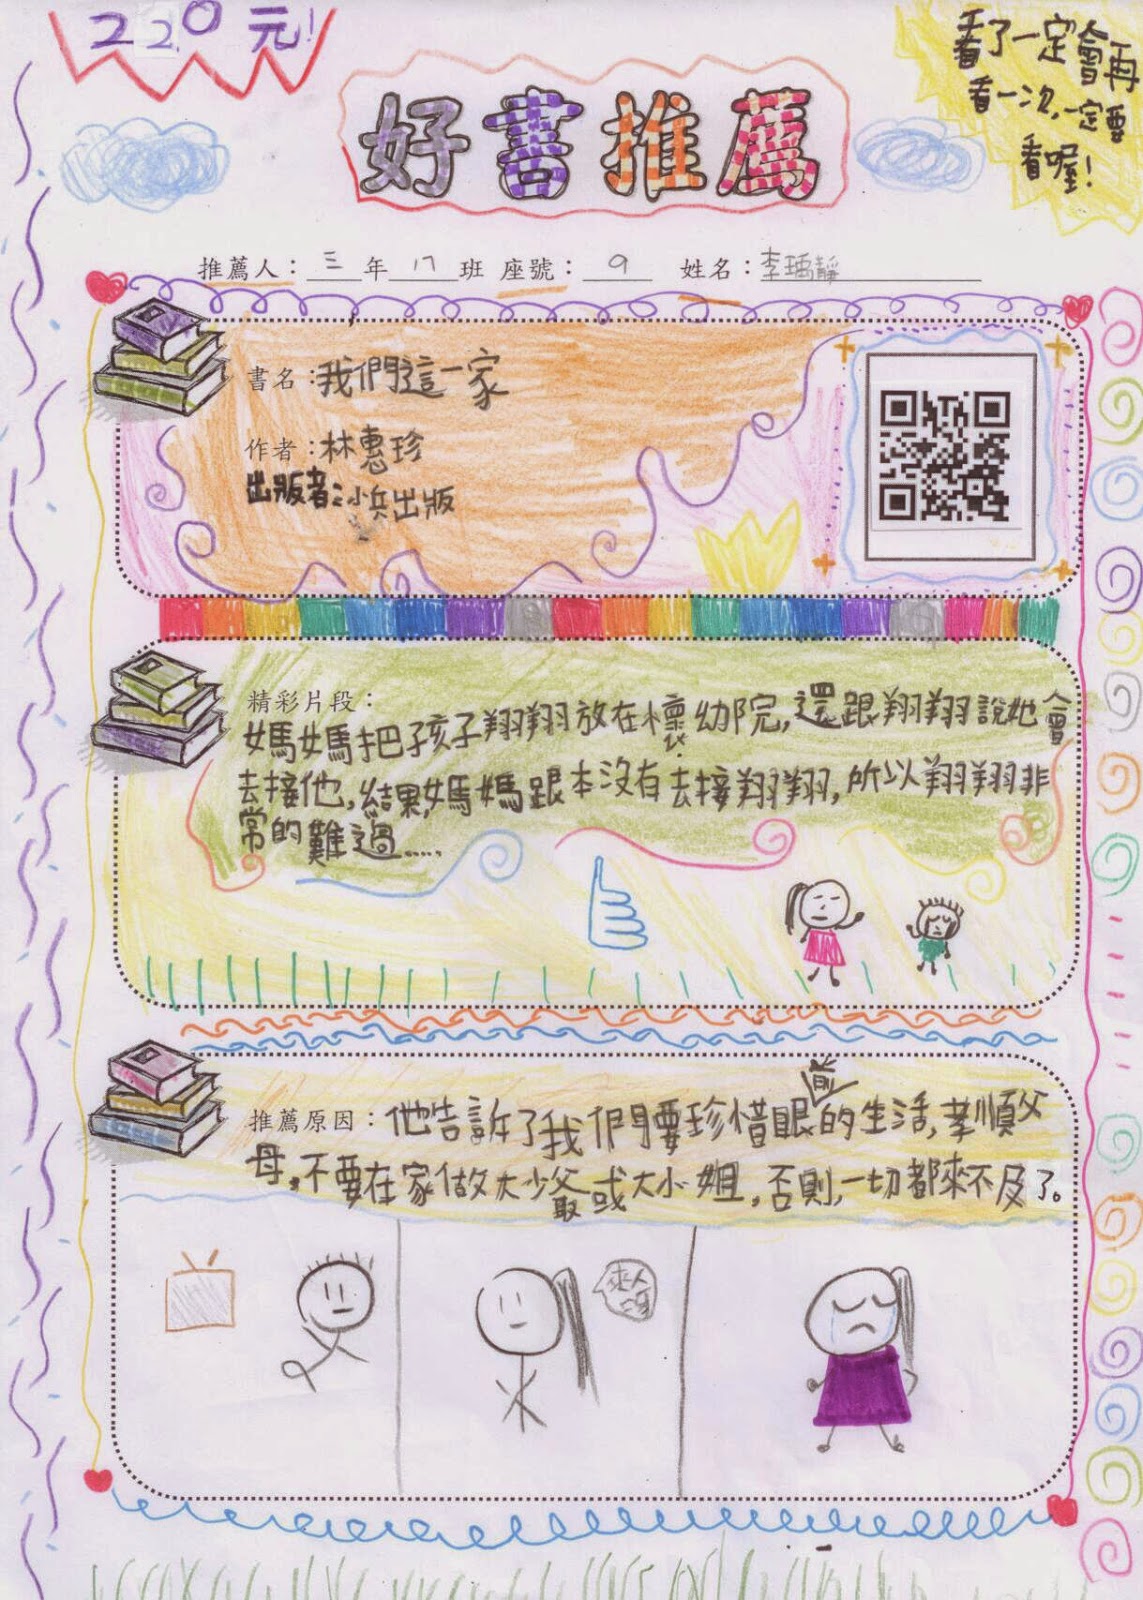 220元!
看了一定會再
看一次,一定要
看喔!
好書推薦
推薦人:三年17班 座號:9 姓名:李瑀靜
書名:我們這一家
作者:林惠珍
出版者:小兵出版
精彩片段:
媽媽把孩子翔翔放在懷幼院,還跟翔翔說她會
去接他,結果,媽媽跟本沒有去接翔翔,所以翔翔非
常的難過.....
推薦原因:他告訴了我們要珍惜眼前的生活,孝順父
母,不要在家做大少爺或大小姐,否則,一切都來不及了。
來人